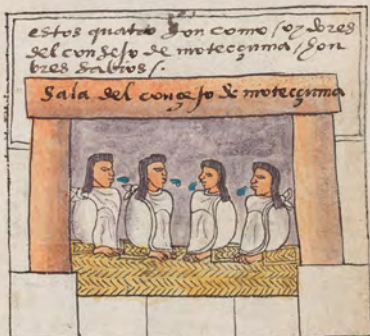 estos quatro son como oydores
del consejo de motecçuma / hon
bres sabios /.
Sala del consejo de motecçuma